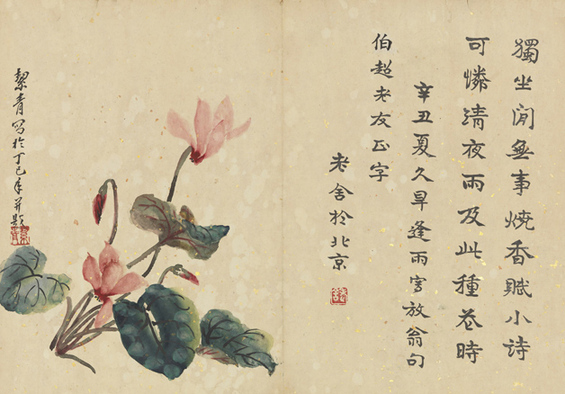 獨坐閒無事燒香賦小詩
可憐清夜雨及此種花時
辛丑夏久旱逢雨寫放翁句
伯超老友正字
老舍於北京
絜青寫於丁巳年并題